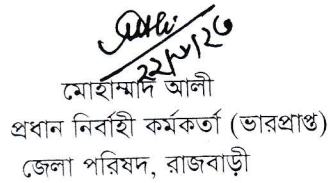 ২২/৮/২৩
মোহাম্মাদ আলী
প্রধান নির্বাহী কর্মকর্তা (ভারপ্রাপ্ত)
জেলা পরিষদ, রাজবাড়ী